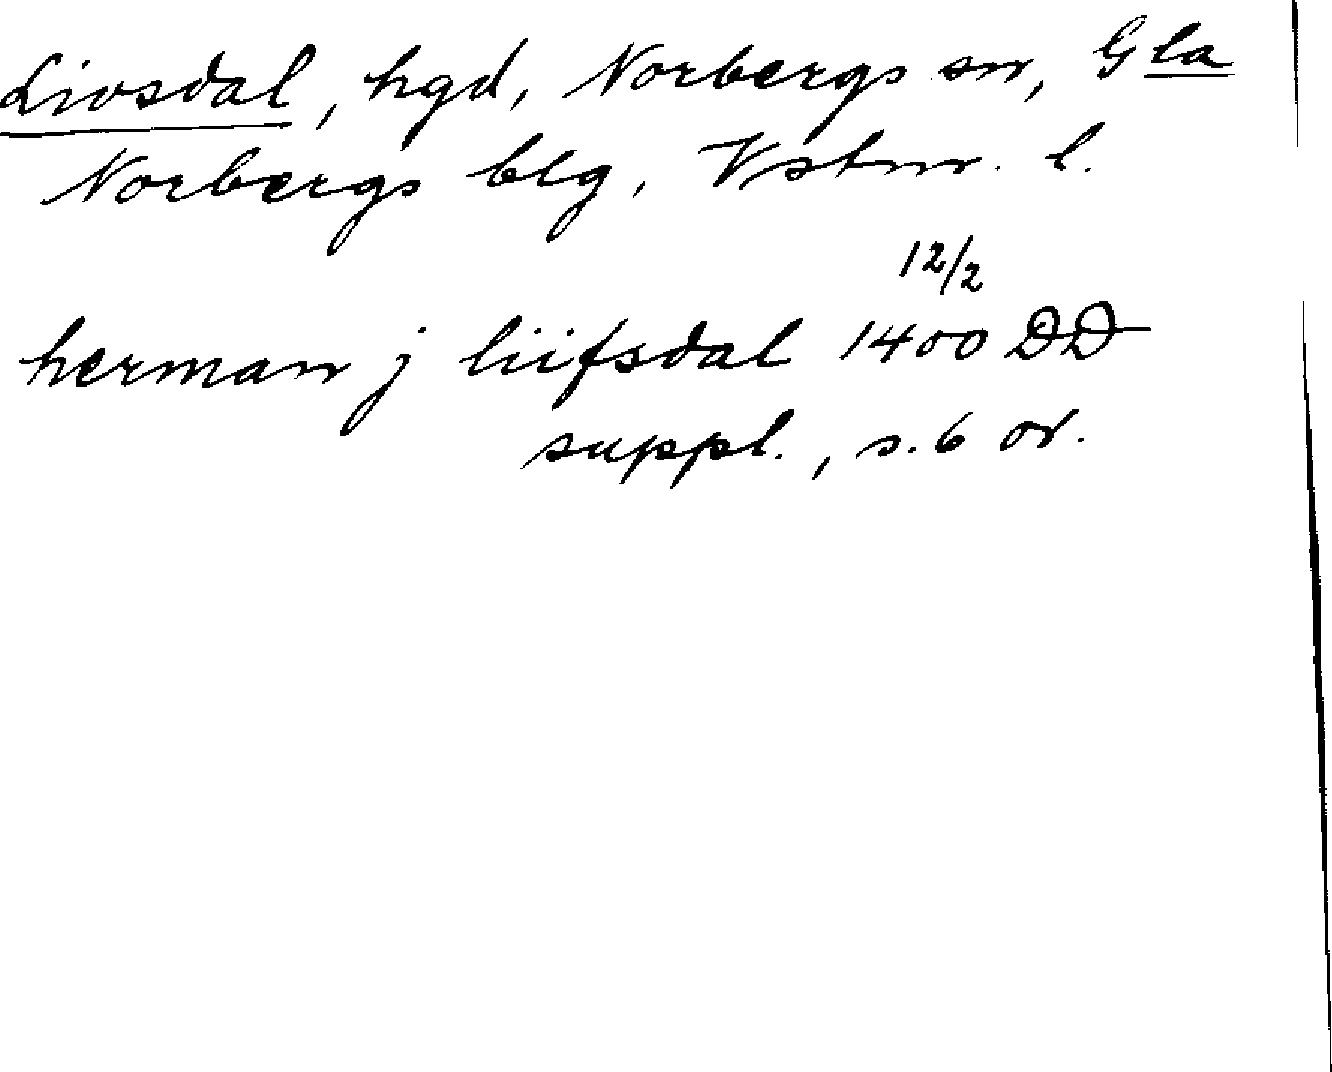 Livsdal, hgd, Norbergs sn, Gla
Norbergs blg, Vstm. l.
12/2
herman j liifsdal 1400 DD
suppl., s. 6 or.